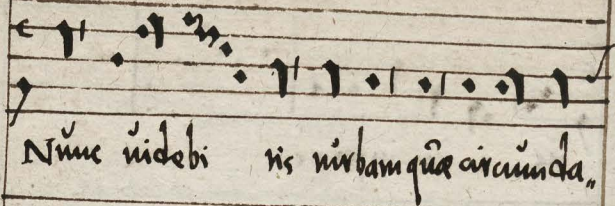 Nunc uidebi tis turbam quæ circunda„